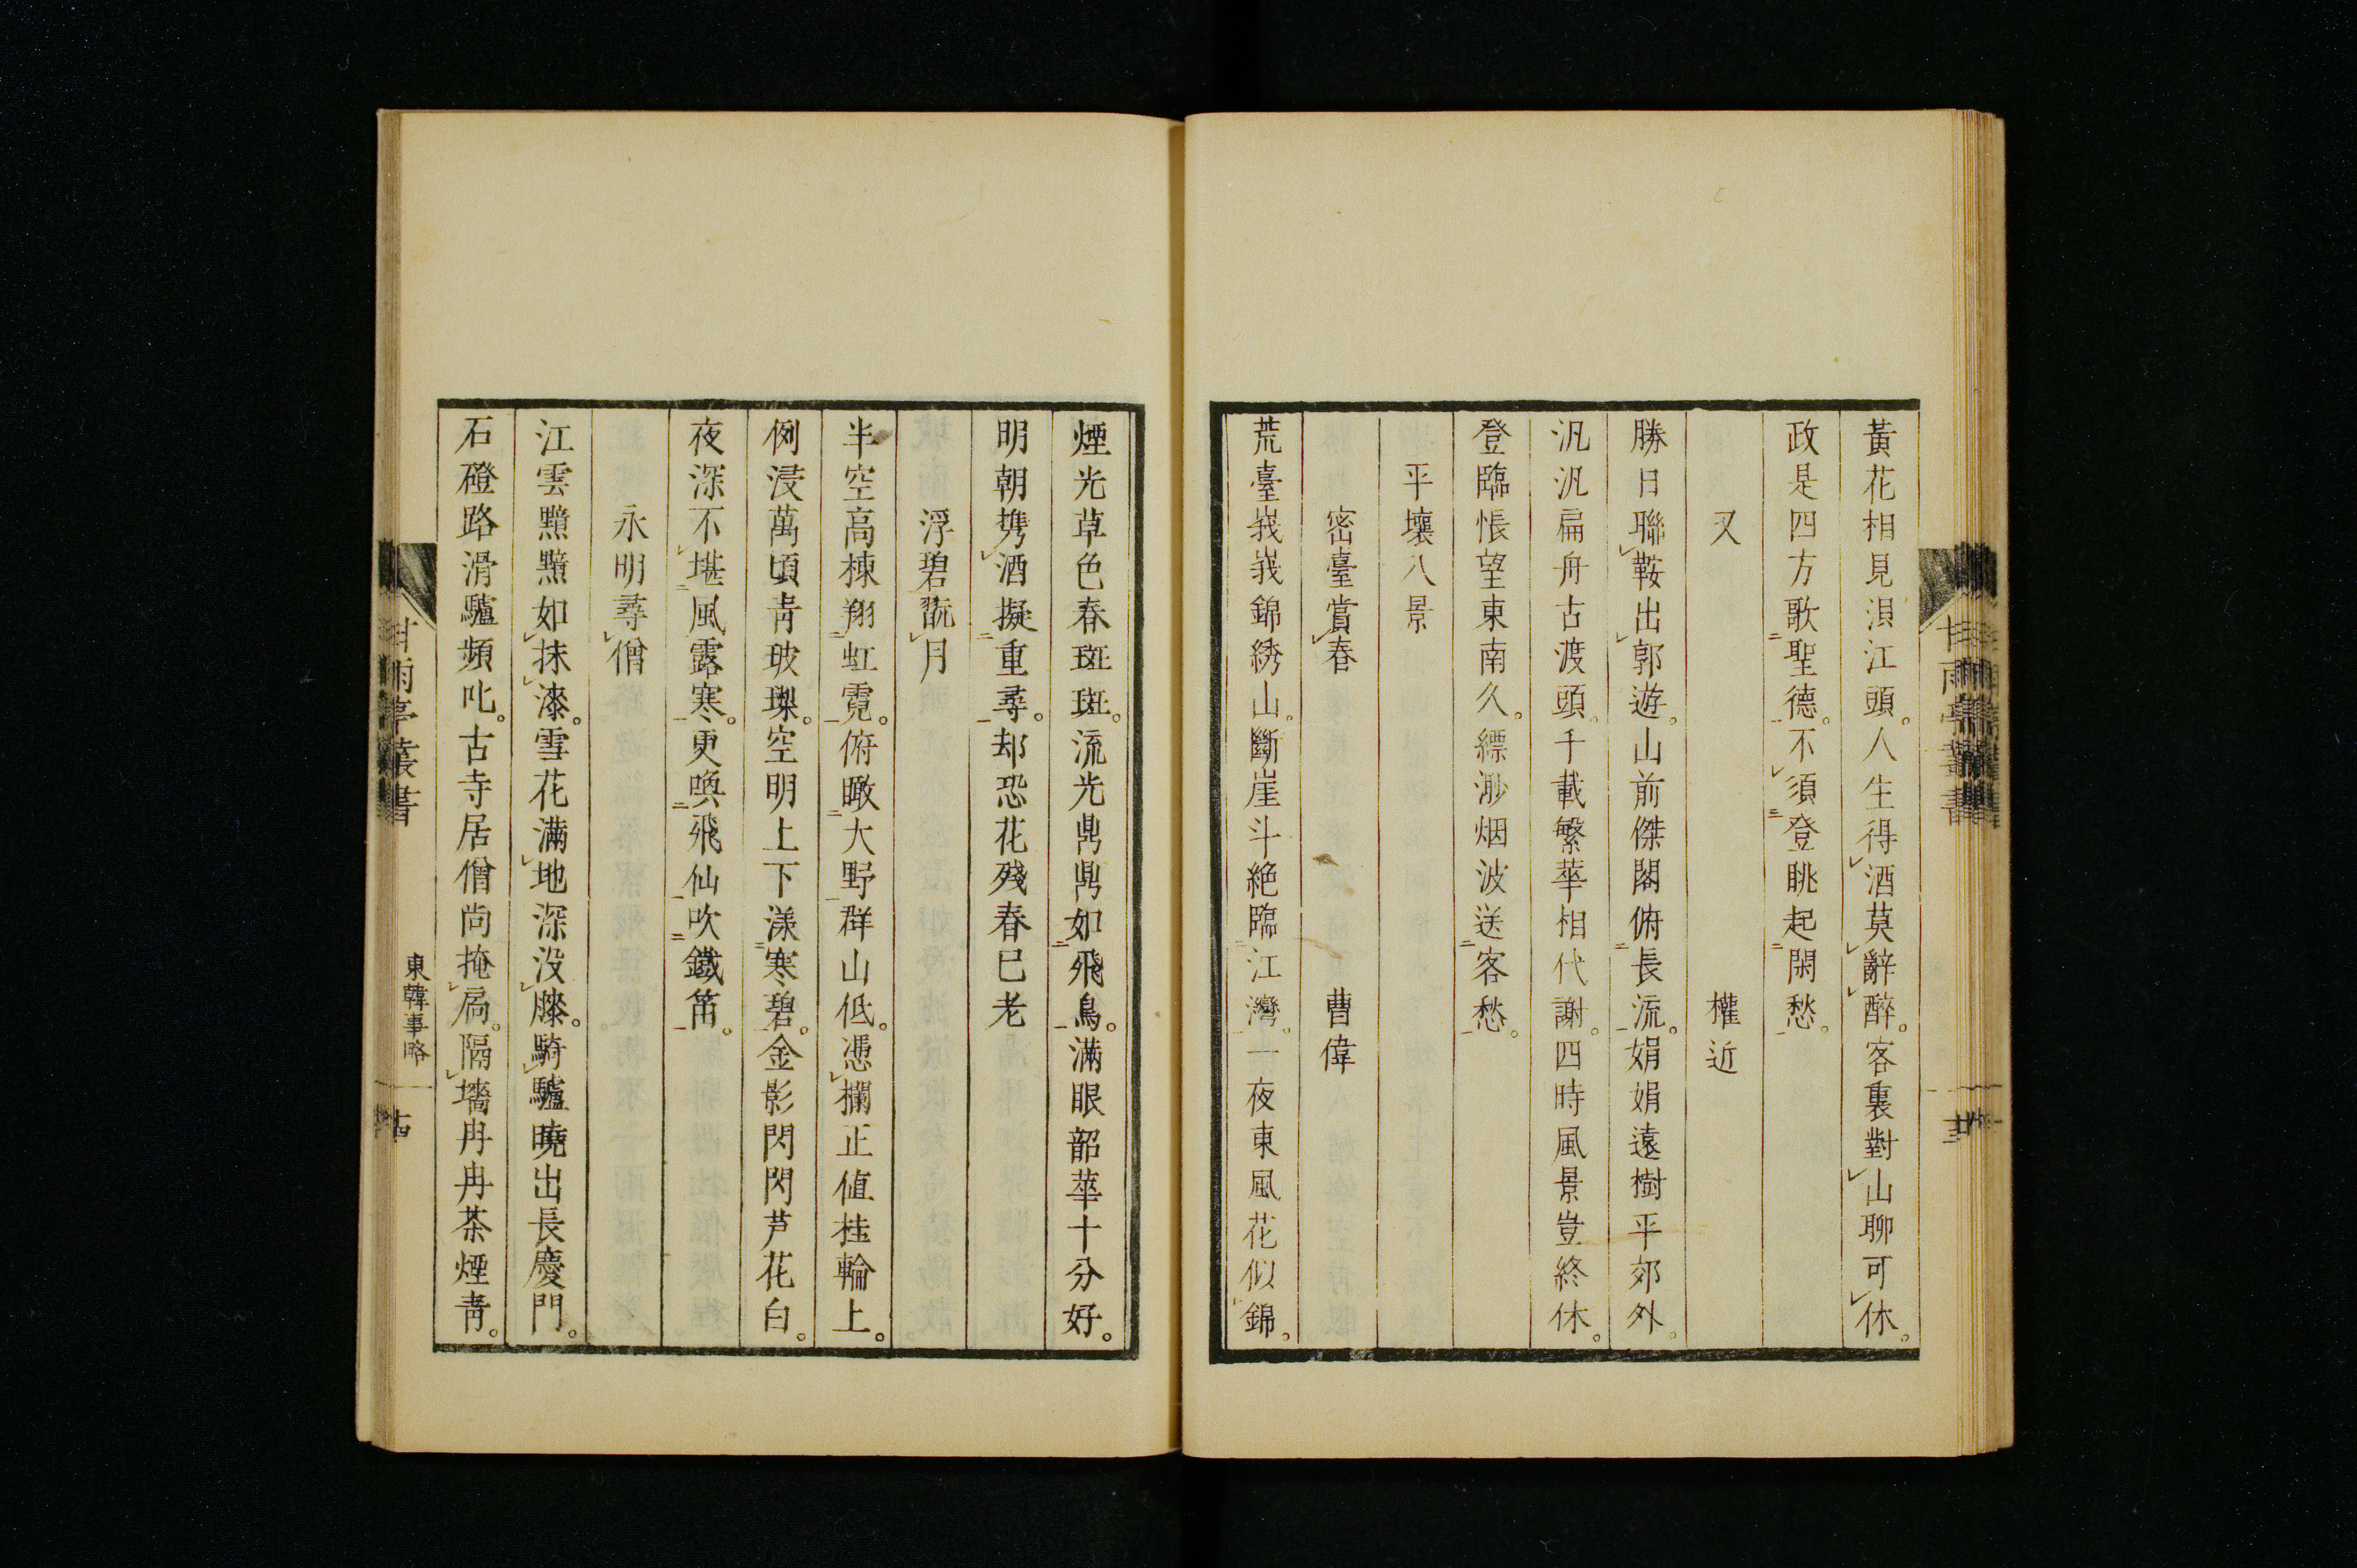 黃花相見浿江頭。人生得酒莫辭醉。客裏對山聊可休。
政是四方歌聖德。不須登眺起閑愁。
又 權近
勝日聯鞍出郭遊。山前傑閣俯長流。娟娟遠樹平郊外。
汎汎扁舟古渡頭。千載繁華相代謝。四時風景豈終休。
登臨悵望東南久。縹渺烟波送客愁。
平壤八景
密臺賞春 曹偉
荒臺峩峩錦綉山。斷崖斗絶臨江灣。一夜東風花似錦。
煙光草色春斑斑。流光鼎鼎如飛鳥。滿眼韶華十分好。
明朝携酒擬重尋。却恐花殘春已老
浮碧翫月
半空高棟翔虹霓。俯瞰大野群山低。憑欄正値桂輪上。
倒浸萬頃青玻瓈。空明上下漾寒碧。金影閃閃芦花白。
夜深不堪風露寒。更喚飛仙吹鐵笛。
永明尋僧
江雲黯黯如抹漆。雪花滿地深没膝。騎驢曉出長慶門。
石磴路滑驢頻叱。古寺居僧尚掩扃。隔墻冉冉茶煙青。
甘雨亭叢書
東韓事略
甘雨亭叢書